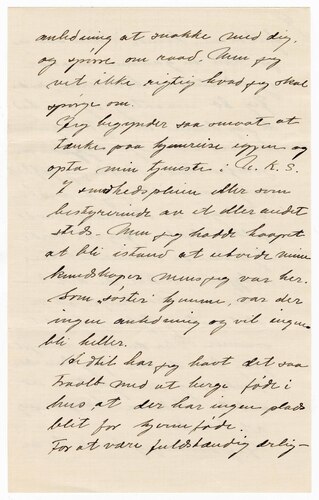 anledning at snakke med dig.
og spörre om raad. Men jeg
vet ikke rigtig hvad jeg skal
spörge om.
Jeg begynder saa smaat at
tænke paa hjemreise igjen og
opta min tjeneste i N. K. S.
I smaahedspleien eller som
bestyrerinde av et eller andet
sted. Men jeg hadde haapet
at bli istand at utvide mine
kundskaper mens jeg var her.
Som "söster" hjemme, var der
ingen anledning og vil ingen
bli heller.
Indtil har jeg havt det saa
travlt med at berge föde i
hus, at der har ingen plads
blit for hjerneföde.
For at være fuldstændig ærlig—